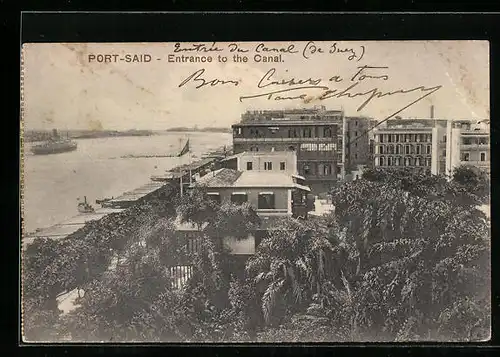 Entrée du Canal (de Suez)
PORT-SAID - Entrance to the Canal.
Bons baisers à tous